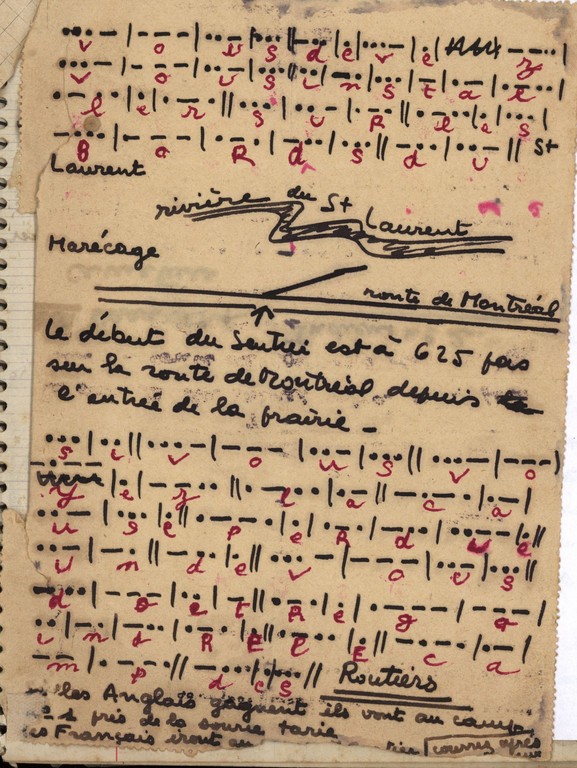 v o u s d e v e z
v o u s i n s t a l
l e r s u R l e s
B o R d s d u St
Laurent
rivière du St Laurent
Marécage
route de Montréal
Le début du Sentier est à 625 pas
sur la route de Montréal depuis
l'entrée de la prairie -
s i v o u s v o
y e z l a c a
u s e p e R d u e
u n d e v o u s
d o i t R e j o
i n d R E l E c a
m p d e s Routiers
les Anglais gagnent ils vont au camp
n° 1 près de la source tarie
les Français iront au